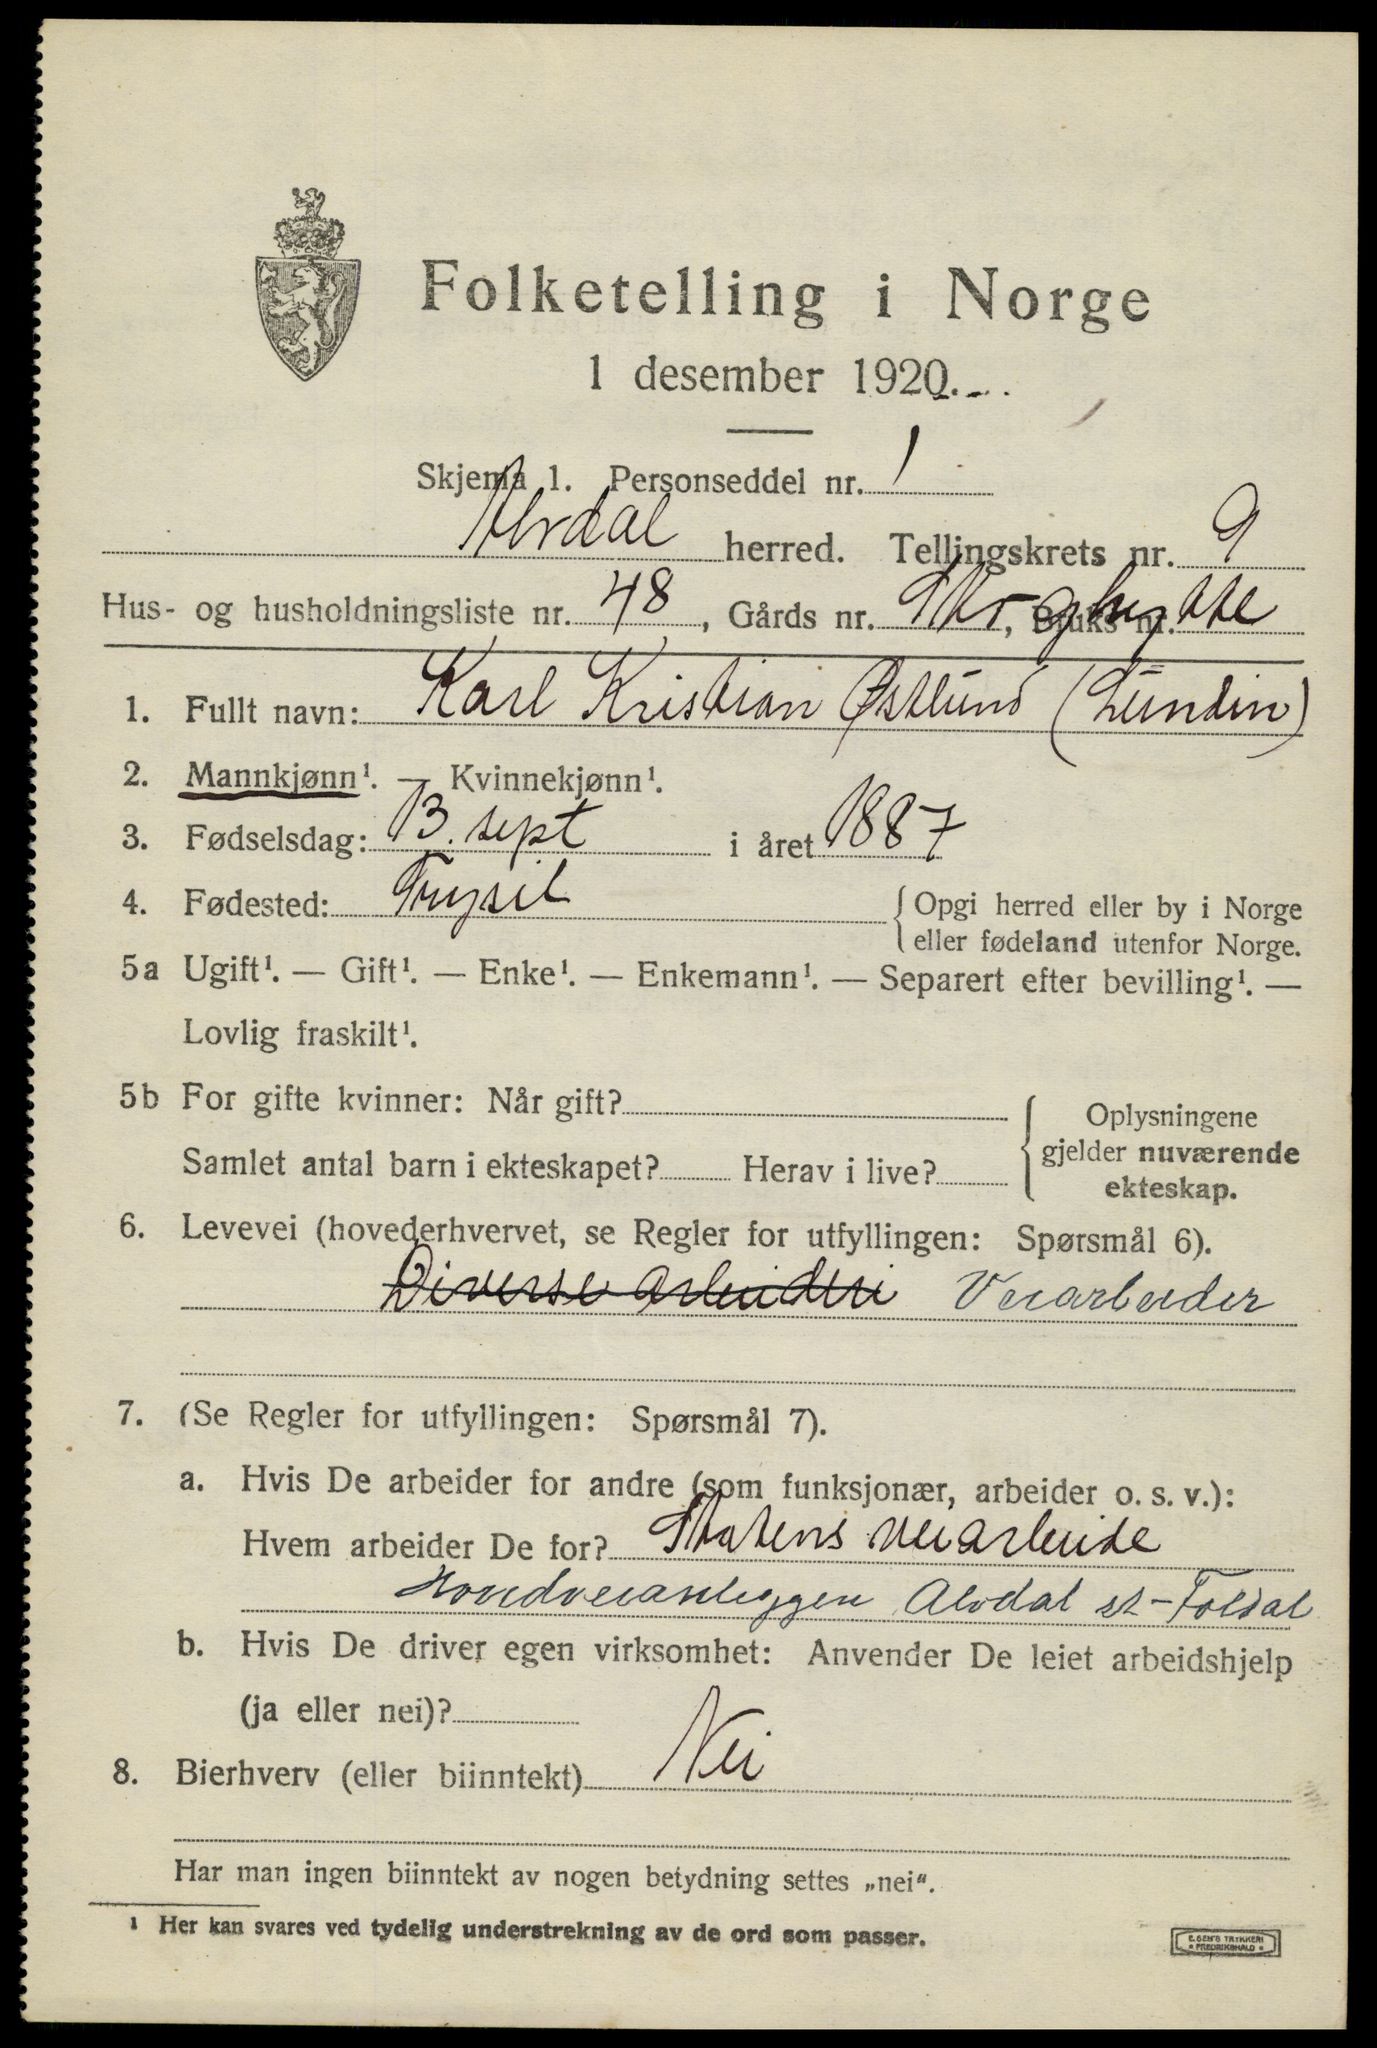 Folketelling i Norge
1 desember 1920.
Skjema 1. Personseddel nr. 1
Alvdal herred. Tellingskrets nr. 9
Hus- og husholdningsliste nr. 48, Gårds nr. , Bruks nr.
1. Fullt navn: Karl Kristian Østlund (Lundin)
2. Mannkjønn¹. — Kvinnekjønn¹.
3. Fødselsdag: 13. sept i året 1887
4. Fødested: Trysil {Opgi herred eller by i Norge
eller fødeland utenfor Norge.
5a Ugift¹. — Gift¹. — Enke¹. — Enkemann¹. — Separert efter bevilling¹. —
Lovlig fraskilt¹.
5b For gifte kvinner: Når gift?
Samlet antal barn i ekteskapet? Herav i live?
{Oplysningene
gjelder nuværende
ekteskap.
6. Levevei (hovederhvervet, se Regler for utfyllingen: Spørsmål 6).
Diverse arbeideri Veiarbeider
7. (Se Regler for utfyllingen: Spørsmål 7).
a. Hvis De arbeider for andre (som funksjonær, arbeider o. s. v.):
Hvem arbeider De for? Statens veiarbeide
Alvdal st - Foldal
b. Hvis De driver egen virksomhet: Anvender De leiet arbeidshjelp
(ja eller nei)?
8. Bierhverv (eller biinntekt) Nei
Har man ingen biinntekt av nogen betydning settes „nei“.
¹ Her kan svares ved tydelig understrekning av de ord som passer.
E. SEM'S TRYKKERI
FREDRIKSHALD